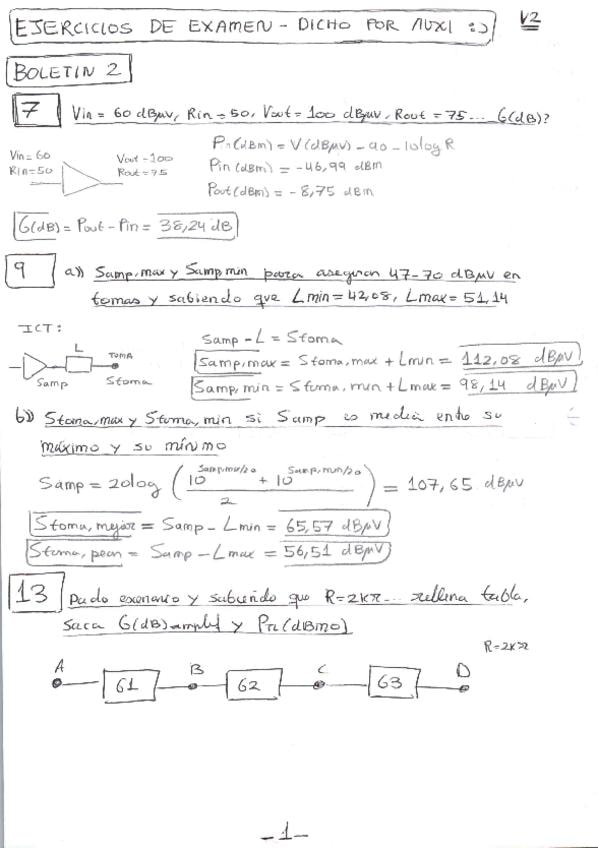 EJERCICIOS DE EXAMEN - DICHO POR AUXI :)
V2
BOLETIN 2
7 Vin = 60 dBµV, Rin = 50, Vout = 100 dBµV, Rout = 75... G(dB)?
Vin = 60
Rin = 50
Vout = 100
Rout = 75
Pn(dBm) = V(dBµV) - 90 - 10log R
Pin(dBm) = -46,99 dBm
Pout(dBm) = -8,75 dBm
G(dB) = Pout - Pin = 38,24 dB
9 a)) Samp,max y Samp min para aseguran 47-70 dBµV en
tomas y sabiendo que Lmin = 42,08, Lmax = 51,14
ICT:
L
TOMA
Samp
Stoma
Samp - L = Stoma
Samp,max = Stoma,max + Lmin = 112,08 dBµV
Samp,min = Stoma,min + Lmax = 98,14 dBµV
b)) Stoma,max y Stoma,min si Samp es media entre su
máximo y su mínimo
Samp = 20log ( 10^Samp,max/20 + 10^Samp,min/20 / 2 ) = 107,65 dBµV
Stoma,mejor = Samp - Lmin = 65,57 dBµV
Stoma,peor = Samp - Lmax = 56,51 dBµV
13 Dado escenario y sabiendo que R=2KΩ... rellena tabla,
saca G(dB) ampl y Pn(dBm0)
R=2KΩ
A B C D
G1 G2 G3
-1-